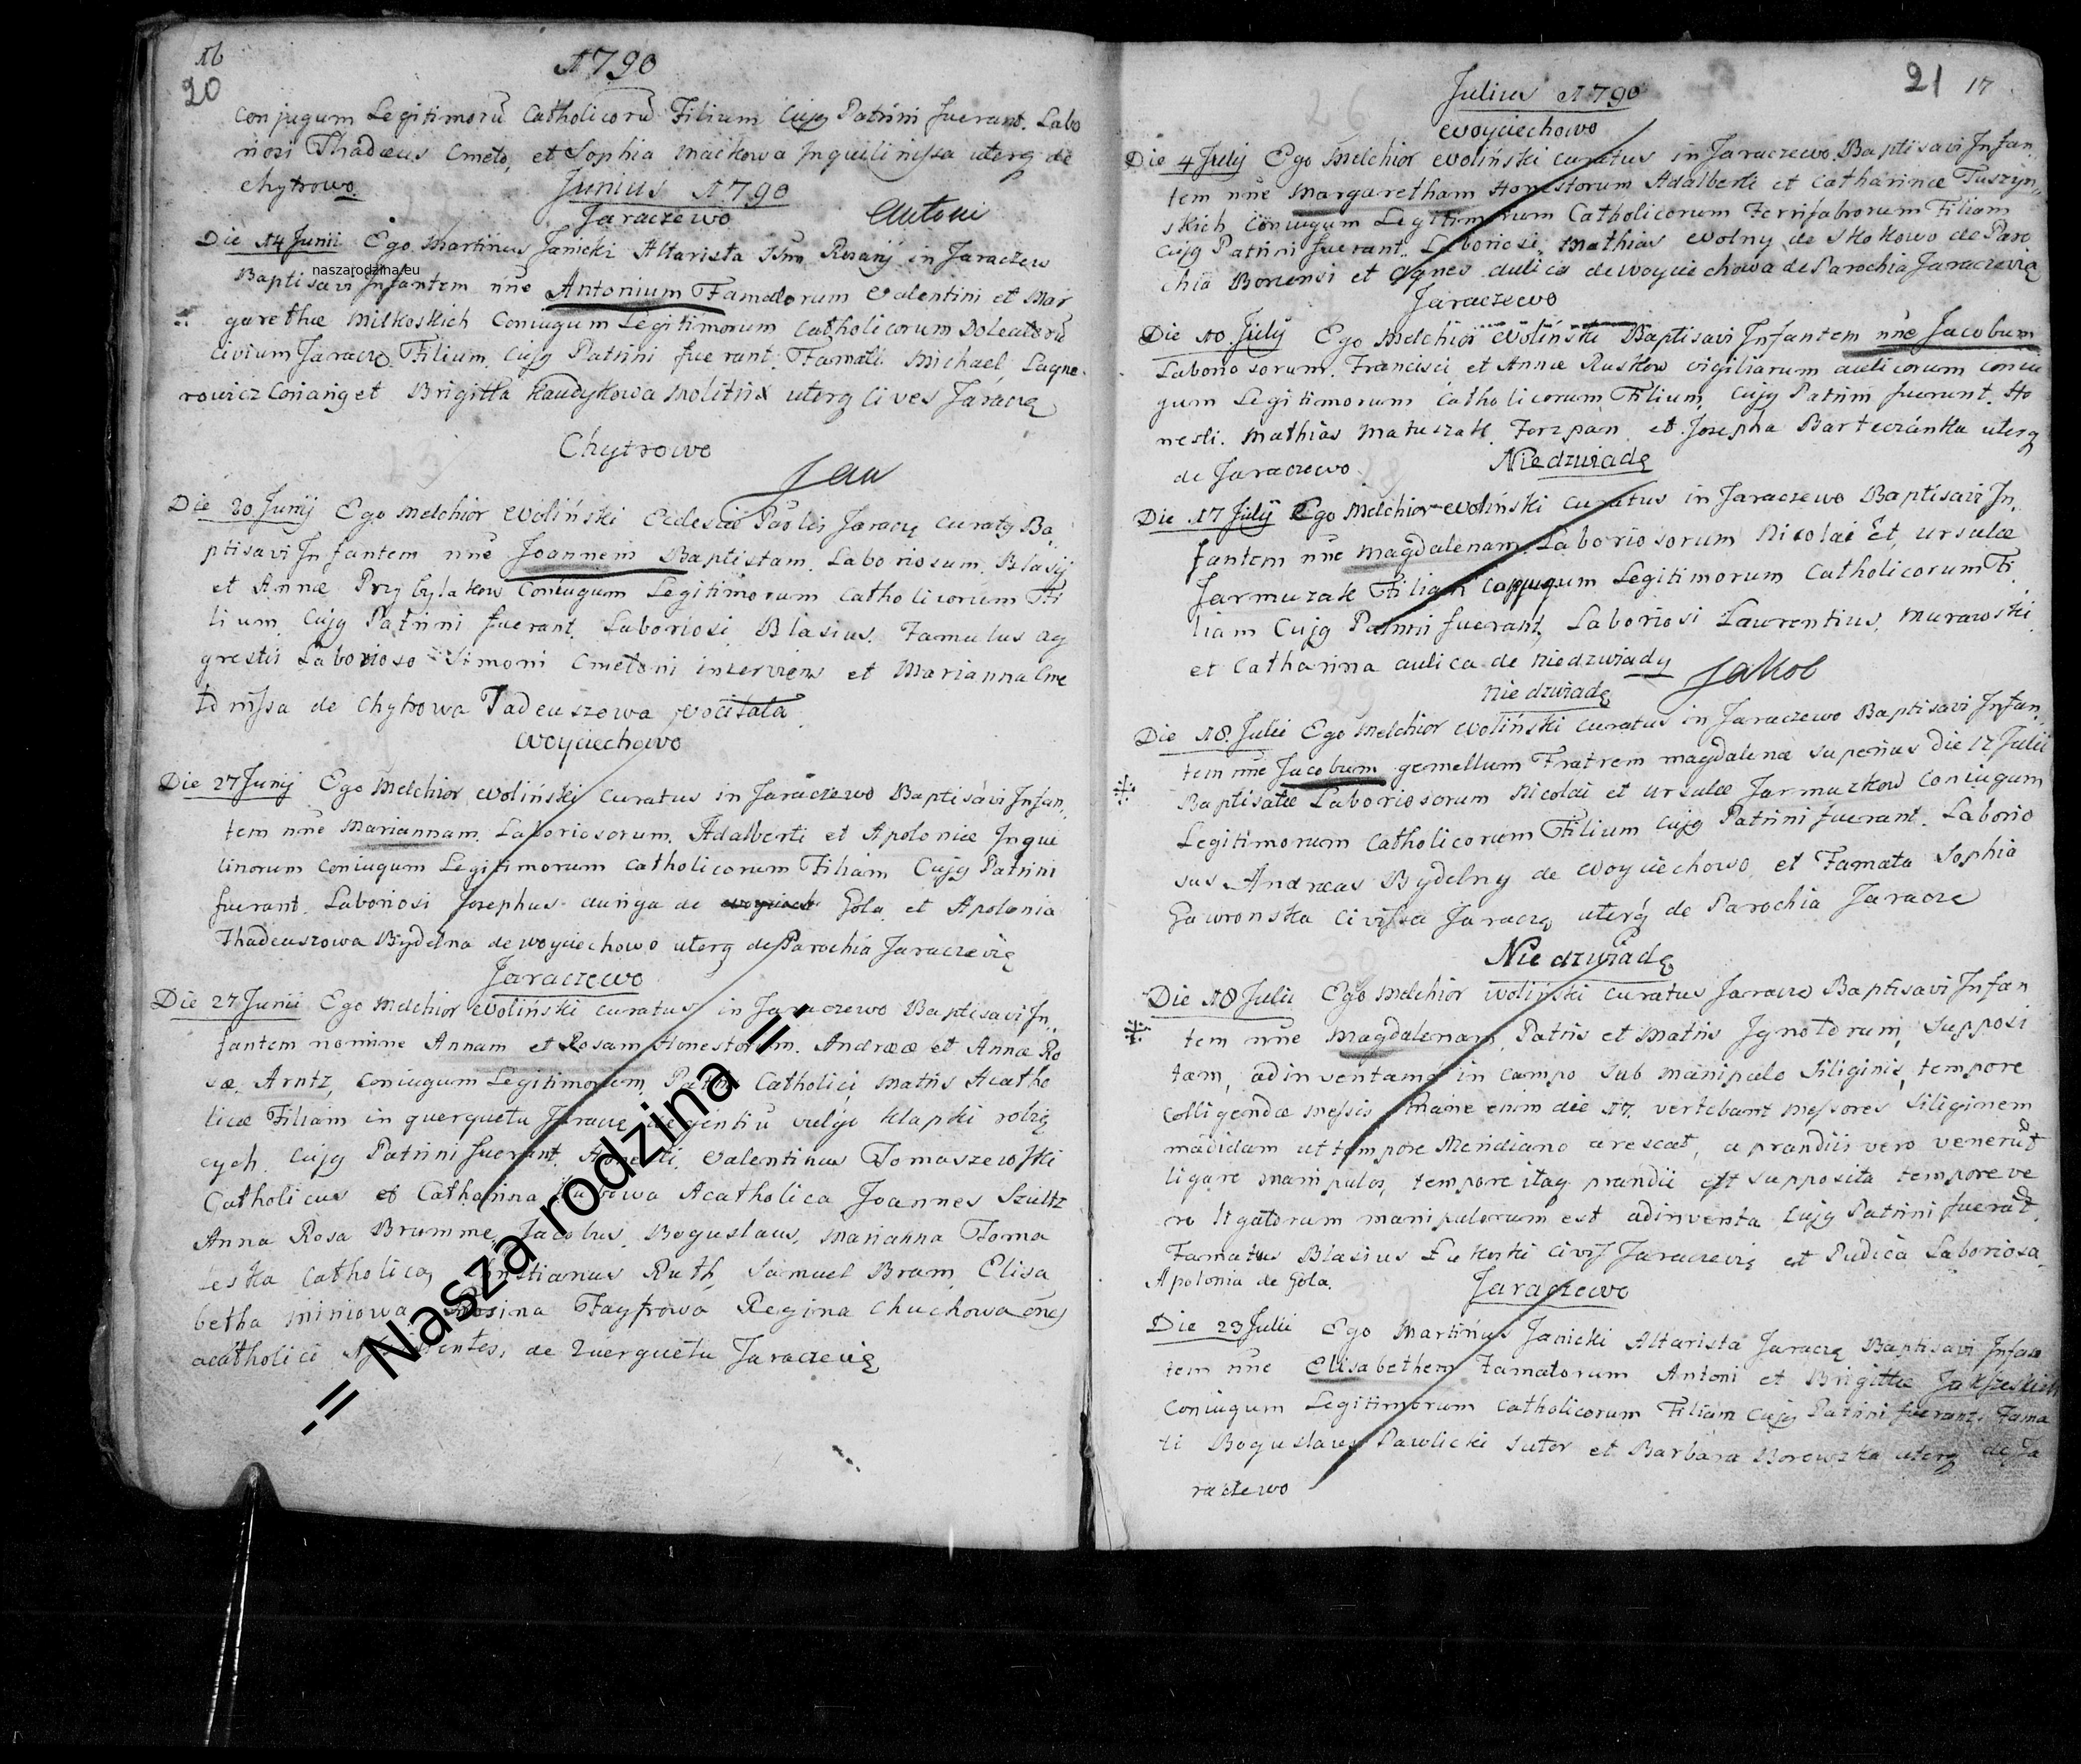 16
20
1790
Conjugum Legitimorū Catholicorū Filium Cujq Patrini fuerunt. Labo
riosi Thadæus Cmeto, et Sophia Maćkowa Inquilinissa uterq de
Chytrowo.
Junius 1790
Jaraczewo
Antoni
Die 14 Junii Ego Martinus Janicki Altarista SSmi Rosarij in Jaraczew
naszarodzina.eu
Baptisavi Infantem nñe Antonium Famatorum Valentini et Mar
garethæ Milkoskich Coniugum Legitimorum Catholicorum Doleatorū
Civium Jaracze. Filium. Cujq Patrini fuerant. Famati Michael
rowicz et Brigitta Kaudykowa Molitrix uterq Cives Jaraczę
Chytrowo
Jan
Die 20 Junij Ego Melchior Woliński Ecclesiæ Jaraczę Curatq Ba,
ptisavi Infantem nñe Joannem Baptistam. Laboriosum. Blasij
et Annæ Przybylakow Coniugum Legitimorum Catholicorum Fi
lium. Cujq Patrini fuerant. Laboriosi Blasius. Famulus ag
grestis Laborioso Simoni Cmetoni inserviens et Marianna Cme
tonissa de Chytrowa Tadeuszowa vocitata.
Woyciechowo
Die 27 Junij Ego Melchior Woliński Curatus in Jaraczewo Baptisavi Infan,
tem nñe Mariannam. Laboriosorum. Adalberti et Apoloniæ Inqui
linorum Coniugum Legitimorum Catholicorum Filiam Cujq Patrini
fuerant. Laboriosi Josephus auriga de Gola et Apolonia
Thadeuszowa Bydelna de Woyciechowo uterq de Parochia Jaraczevię
Jaraczewo
Die 27 Junii Ego Melchior Woliński curatus in Jaraczewo Baptisavi In,
fantem nomine Annam et Rosam Honestorum. Andreæ et Annæ Ro
sæ Arntz, Coniugum Legitimorum Patris Catholici Matris Acatho
licæ Filiam in querquetu Jaraczę degentiū vulgo Klapki robię
cych. Cujq Patrini fuerunt. Honesti. Valentinus Tomaszewski
Catholicus et Catharina Acatholica Joannes Szultz
Anna Rosa Brumme, Jacobus. Boguslaus, Marianna Toma
leska Catholica, Christianus Ruth, Samuel Bram, Elisa
betha Miniowa, Rosina Fayfrowa Regina Chuchowa ōnes
acatholici de Querquetu Jaraczevię
-= Nasza rodzina =-
21 17
Julius 1790
Woyciechowo
Die 4 Julij Ego Melchior Woliński curatus in Jaraczewo. Baptisavi Infan,
tem nñe Margaretham Honestorum Adalberti et Catharinæ Tuszyn,
skich Coniugum Legitimorum Catholicorum Ferrifabrorum Filiam
Cujq Patrini fuerant. Laboriosi. Mathias Wolny de Skokowo de Paro
chia Borensi et Agnes aulica de Woyciechowa de Parochia Jaraczevię
Jaraczewo
Die 10 Julij Ego Melchior Woliński Baptisavi Infantem nñe Jacobum
Laboriosorum. Francisci et Annæ Ruskow vigiliarum aulicorum coniu
gum Legitimorum Catholicorum Filium, Cujq Patrini fuerunt. Ho
nesti. Mathias Matuszak Forszpan et Josepha Bartwzánka uterq
de Jaraczewo.
Niedzwiadę
Die 17 Julij Ego Melchior Woliński Curatus in Jaraczewo Baptisavi In,
fantem nñe Magdalenam. Laboriosorum Nicolai Et Ursulæ
Jarmuzak Filiam Coniugum Legitimorum Catholicorum Fi
liam Cujq Patrini fuerant. Laboriosi Laurentius, Murawski
et Catharina aulica de Niedzwiady
Jakob
Niedzwiadę
Die 18. Julii Ego Melchior Woliński curatus in Jaraczewo Baptisavi Infan,
tem nñe Jacobum gemellum Fratrem Magdalenæ superius die 17 Julii
Baptisatæ Laboriosorum Nicolai et Ursulæ Jarmuzkow Coniugum
Legitimorum Catholicorum Filium Cujq Patrini fuerant. Laborio
sus Andreas Bydelny de Woyciechowo, et Famata Sophia
Gawronska Civissa Jaraczę uterq de Parochia Jaracze
Niedzwiadę
Die 18 Julii Ego Melchior Woliński curatus Jaracze Baptisavi Infan
tem nñe Magdalenam, Patris et Matris Ignotorum, Supposi
tam, adinventam in Campo sub manipulo Siliginis, tempore
Colligendæ Messis Mane enim die 17 vertebant Messores Siliginem
madidam ut tempore Meridiano arescat, a prandiis vero venerūt
ligare manipulos, tempore itaq prandii est supposita tempore ve
ro ligatorum manipulorum est adinventa Cujq Patrini fuerāt.
Famatus Blasius civis Jaraczevię et Pudica Laboriosa
Apolonia de Gola.
Jaraczewo
Die 23 Julii Ego Martinus Janicki Altarista Jaraczę Baptisavi Infan
tem nñe Elisabethem Famatorum Antoni et Brigittæ
Coniugum Legitimorum Catholicorum Filiam Cujq Patrini fuerant. Fama
ti Boguslaus Pawlicki Sutor et Barbara uterq de Ja
raczewo